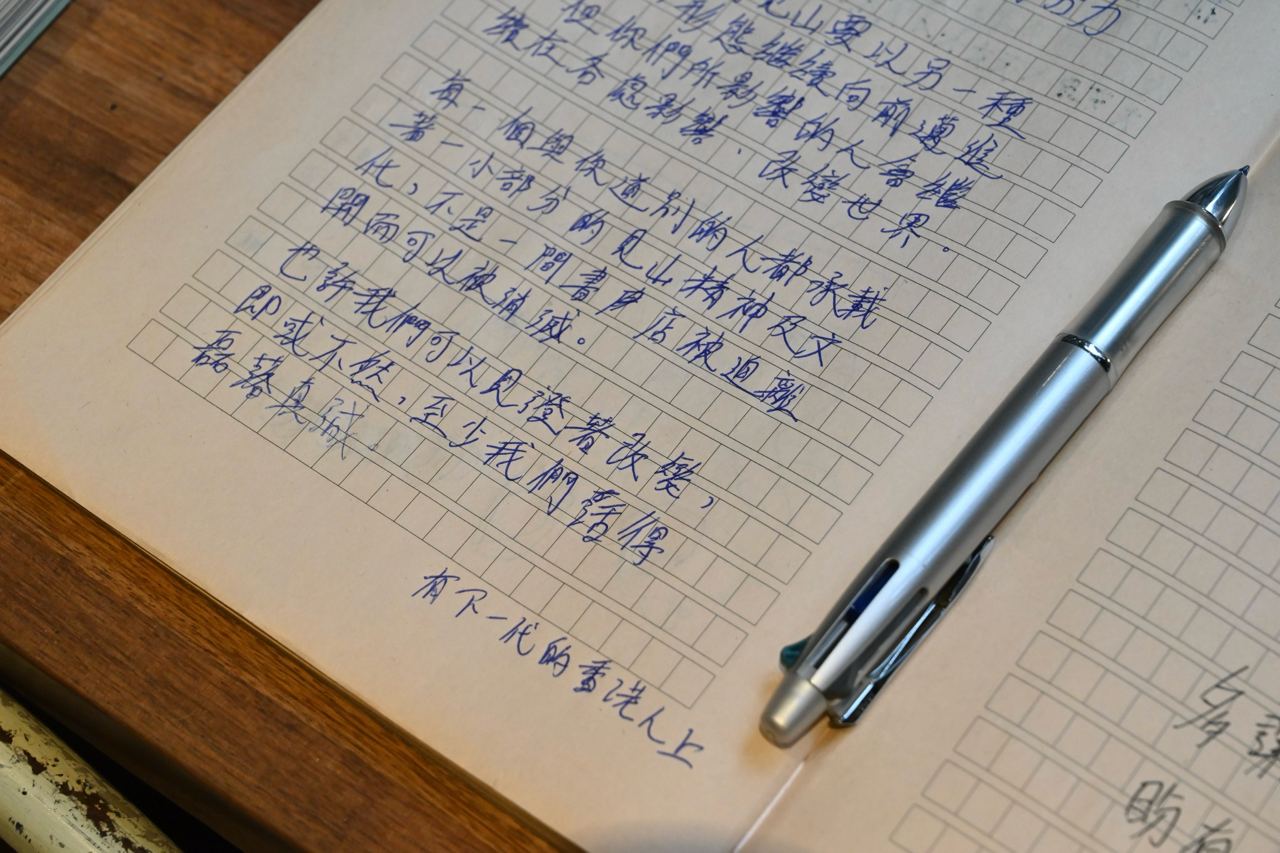 力
見山要以另一種
形態繼續向前邁進
但你們所影響的人會繼
續在各處影響、改變世界。
每一個與你道別的人都承載
著一小部分的見山精神及文
化，不是一間書店被迫離
開而可以被消滅。
也許我們可以見證著改變，
即或不然，至少我們得
磊落真誠.
有下一代的香港人上
的有